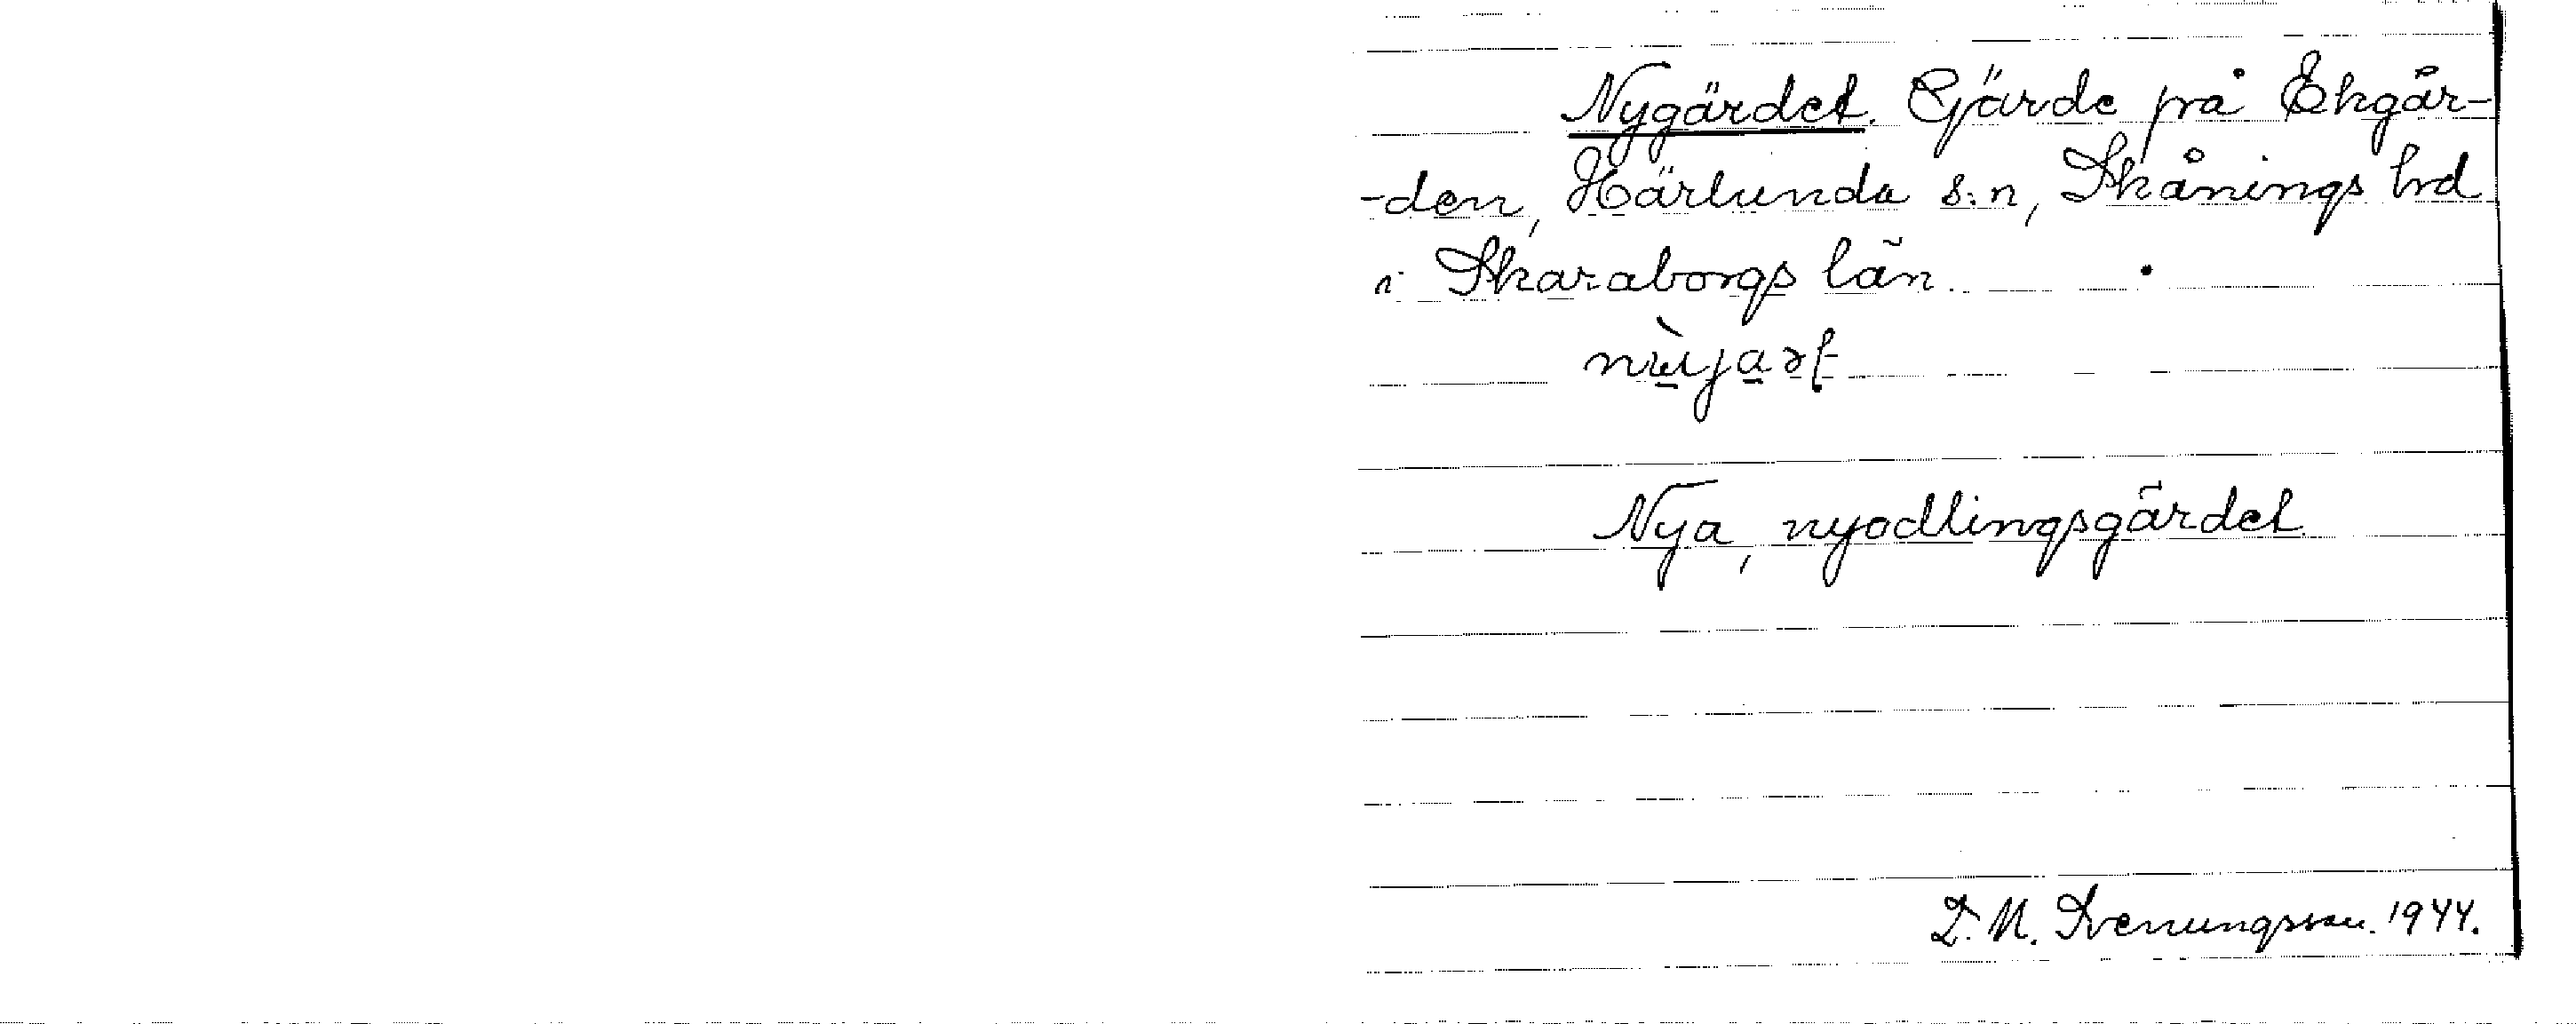 Nygärdet. Gärde på Ekgår-
-den, Härlunda s:n, Skånings hrd
i Skaraborgs län.
Nya, nyodlingsgärdet.
D. N. Svenungsson. 1944.